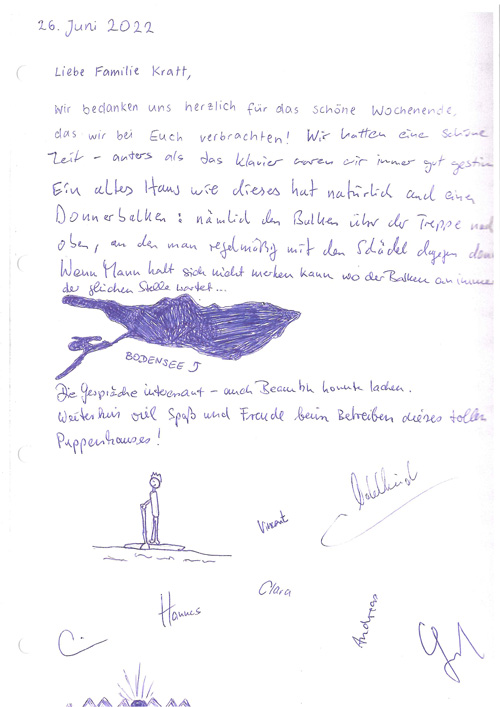 26. Juni 2022
Liebe Familie Kratt,
Wir bedanken uns herzlich für das schöne Wochenende,
das wir bei Euch verbrachten! Wir hatten eine schöne
Zeit – anders als das Klavier waren wir immer gut gestim
Ein altes Haus wie dieses hat natürlich auch einen
Donnerbalken: nämlich den Balken über der Treppe nach
oben, an den man regelmäßig mit den Schädel dagegen
Wenn Mann halt sich nicht merken kann wo der Balken an immer
der gleichen Stelle wartet...
BODENSEE
Die Gespräche interessant – auch konnte lachen.
Weiterhin viel Spaß und Freude beim Betreiben dieses tollen
Puppenhauses!
Vincent
Clara
Hannes
Andreas